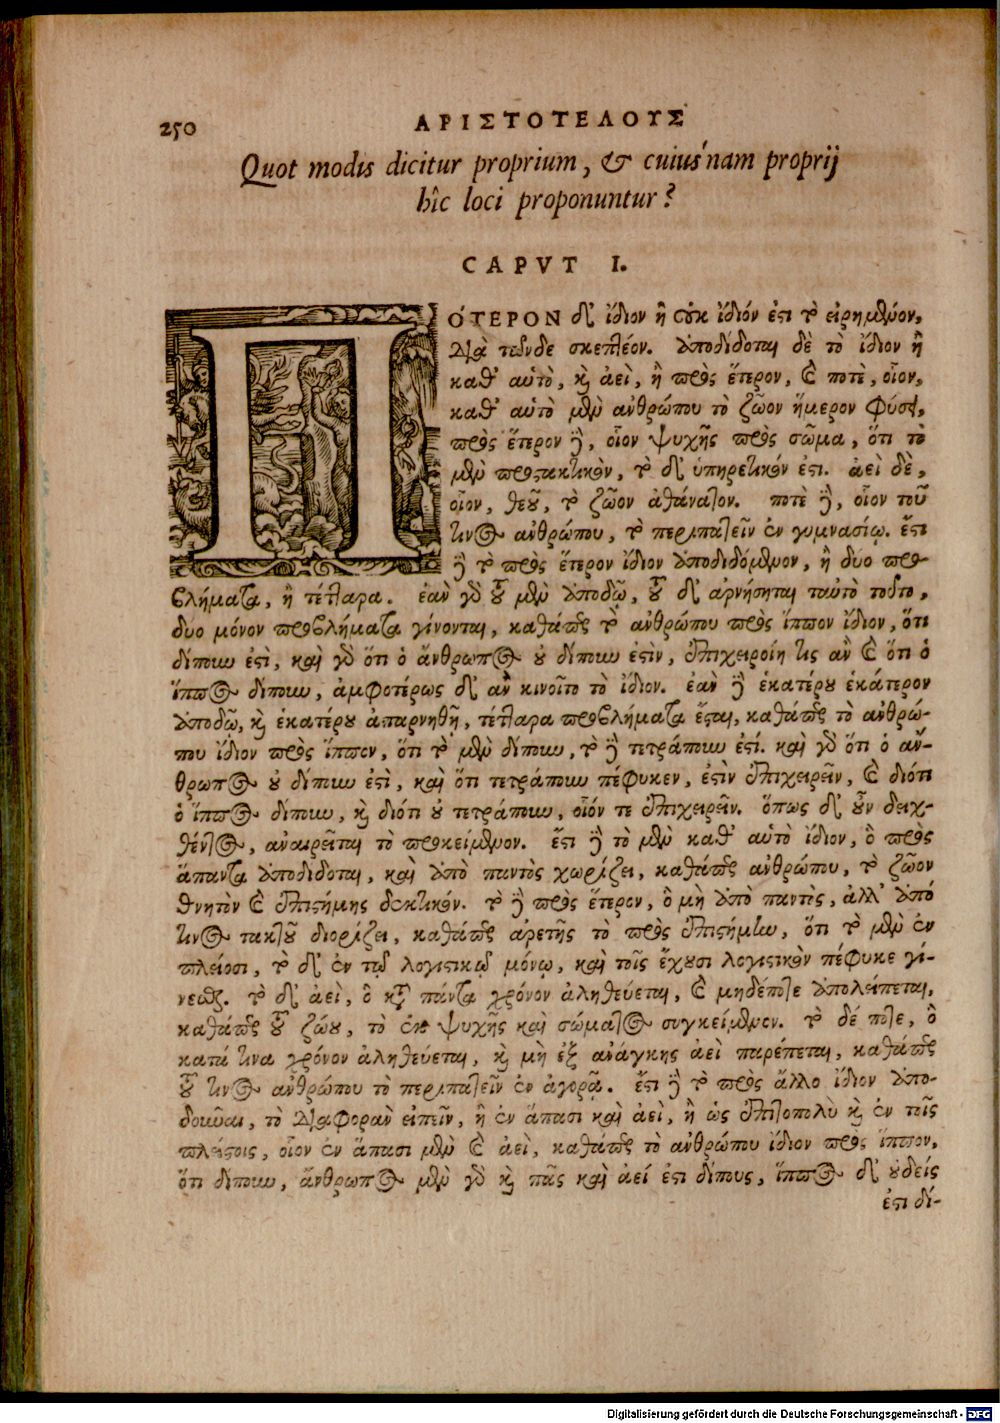 250
ΑΡΙΣΤΟΤΕΛΟΥΣ
Quot modis dicitur proprium, & cuius'nam proprij
hîc loci proponuntur?
CAPVT I.
ΠΟΤΕΡΟΝ δ' ἴδιον ἢ οὐκ ἴδιόν ἐστι τὸ εἰρημένον,
διὰ τῶνδε σκεπτέον. ἀποδίδοται δὲ τὸ ἴδιον ἢ
καθ' αὑτὸ, καὶ ἀεὶ, ἢ πρὸς ἕτερον, καὶ ποτὲ, οἷον,
καθ' αὑτὸ μὲν ἀνθρώπου τὸ ζῶον ἥμερον φύσει,
πρὸς ἕτερον δὲ, οἷον ψυχῆς πρὸς σῶμα, ὅτι τὸ
μὲν προστακτικὸν, τὸ δ' ὑπηρετικόν ἐστι. ἀεὶ δὲ,
οἷον, θεοῦ, τὸ ζῶον ἀθάνατον. ποτὲ δὲ, οἷον τοῦ
τινὸς ἀνθρώπου, τὸ περιπατεῖν ἐν γυμνασίῳ. ἔστι
δὲ τὸ πρὸς ἕτερον ἴδιον ἀποδιδόμενον, ἢ δύο προ-
βλήματα, ἢ τέτταρα. ἐὰν γὰρ τοῦ μὲν ἀποδῷ, τοῦ δ' ἀρνήσηται ταὐτὸ τοῦτο,
δύο μόνον προβλήματα γίνονται, καθάπερ τὸ ἀνθρώπου πρὸς ἵππον ἴδιον, ὅτι
δίπουν ἐστὶ, καὶ γὰρ ὅτι ὁ ἄνθρωπος οὐ δίπουν ἐστὶν, ἐπιχειροίη τις ἂν καὶ ὅτι ὁ
ἵππος δίπουν, ἀμφοτέρως δ' ἂν κινοῖτο τὸ ἴδιον. ἐὰν δὲ ἑκατέρου ἑκάτερον
ἀποδῷ, καὶ ἑκατέρου ἀπαρνηθῇ, τέτταρα προβλήματα ἔσται, καθάπερ τὸ ἀνθρώ-
που ἴδιον πρὸς ἵππον, ὅτι τὸ μὲν δίπουν, τὸ δὲ τετράπουν ἐστί. καὶ γὰρ ὅτι ὁ ἄν-
θρωπος οὐ δίπουν ἐστὶ, καὶ ὅτι τετράπουν πέφυκεν, ἐστὶν ἐπιχειρεῖν, καὶ διότι
ὁ ἵππος δίπουν, καὶ διότι οὐ τετράπουν, οἷόν τε ἐπιχειρεῖν. ὅπως δ' οὖν δειχ-
θέντος, ἀναιρεῖται τὸ προκείμενον. ἔστι δὲ τὸ μὲν καθ' αὑτὸ ἴδιον, ὃ πρὸς
ἅπαντα ἀποδίδοται, καὶ ἀπὸ παντὸς χωρίζει, καθάπερ ἀνθρώπου, τὸ ζῶον
θνητὸν καὶ ἐπιστήμης δεκτικόν. τὸ δὲ πρὸς ἕτερον, ὃ μὴ ἀπὸ παντὸς, ἀλλ' ἀπό
τινος τακτοῦ διορίζει, καθάπερ ἀρετῆς τὸ πρὸς ἐπιστήμην, ὅτι τὸ μὲν ἐν
πλείοσι, τὸ δ' ἐν τῷ λογιστικῷ μόνῳ, καὶ τοῖς ἔχουσι λογιστικὸν πέφυκε γί-
νεσθαι. τὸ δ' ἀεὶ, ὃ κατὰ πάντα χρόνον ἀληθεύεται, καὶ μηδέποτε ἀπολείπεται,
καθάπερ τοῦ ζώου, τὸ ἐκ ψυχῆς καὶ σώματος συγκείμενον. τὸ δέ ποτε, ὃ
κατά τινα χρόνον ἀληθεύεται, καὶ μὴ ἐξ ἀνάγκης ἀεὶ παρέπεται, καθάπερ
τοῦ τινὸς ἀνθρώπου τὸ περιπατεῖν ἐν ἀγορᾷ. ἔστι δὲ τὸ πρὸς ἄλλο ἴδιον ἀπο-
δοῦναι, τὸ διαφορὰν εἰπεῖν, ἢ ἐν ἅπασι καὶ ἀεὶ, ἢ ὡς ἐπιτοπολὺ καὶ ἐν τοῖς
πλείστοις, οἷον ἐν ἅπασι μὲν καὶ ἀεὶ, καθάπερ τὸ ἀνθρώπου ἴδιον πρὸς ἵππον,
ὅτι δίπουν, ἄνθρωπος μὲν γὰρ καὶ πᾶς καὶ ἀεί ἐστι δίπους, ἵππος δ' οὐδείς
ἐστι δί-
Digitalisierung gefördert durch die Deutsche Forschungsgemeinschaft - DFG